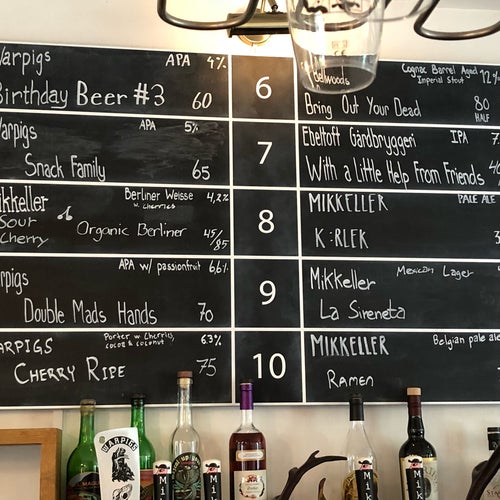 Warpigs APA 4%
Birthday Beer #3 60
Warpigs APA 5%
Snack Family 65
Mikkeller Berliner Weisse 4,2%
w. cherries
Sour Cherry Organic Berliner 45/85
Warpigs APA w/ passionfruit 6,6%
Double Mads Hands 70
WARPIGS Porter w Cherries, 6.3%
cocoa & coconut
CHERRY RIPE 75
6
7
8
9
10
Bellwoods Cognac Barrel Aged 12%
Imperial Stout
Bring Out Your Dead 80
HALF
Ebeltoft Gårdbryggeri IPA 7
With a Little Help From Friends
MIKKELLER PALE ALE
K:RLEK
Mikkeller Mexican Lager
La Sireneta
MIKKELLER Belgian pale ale
RAMEN
WARPIGS